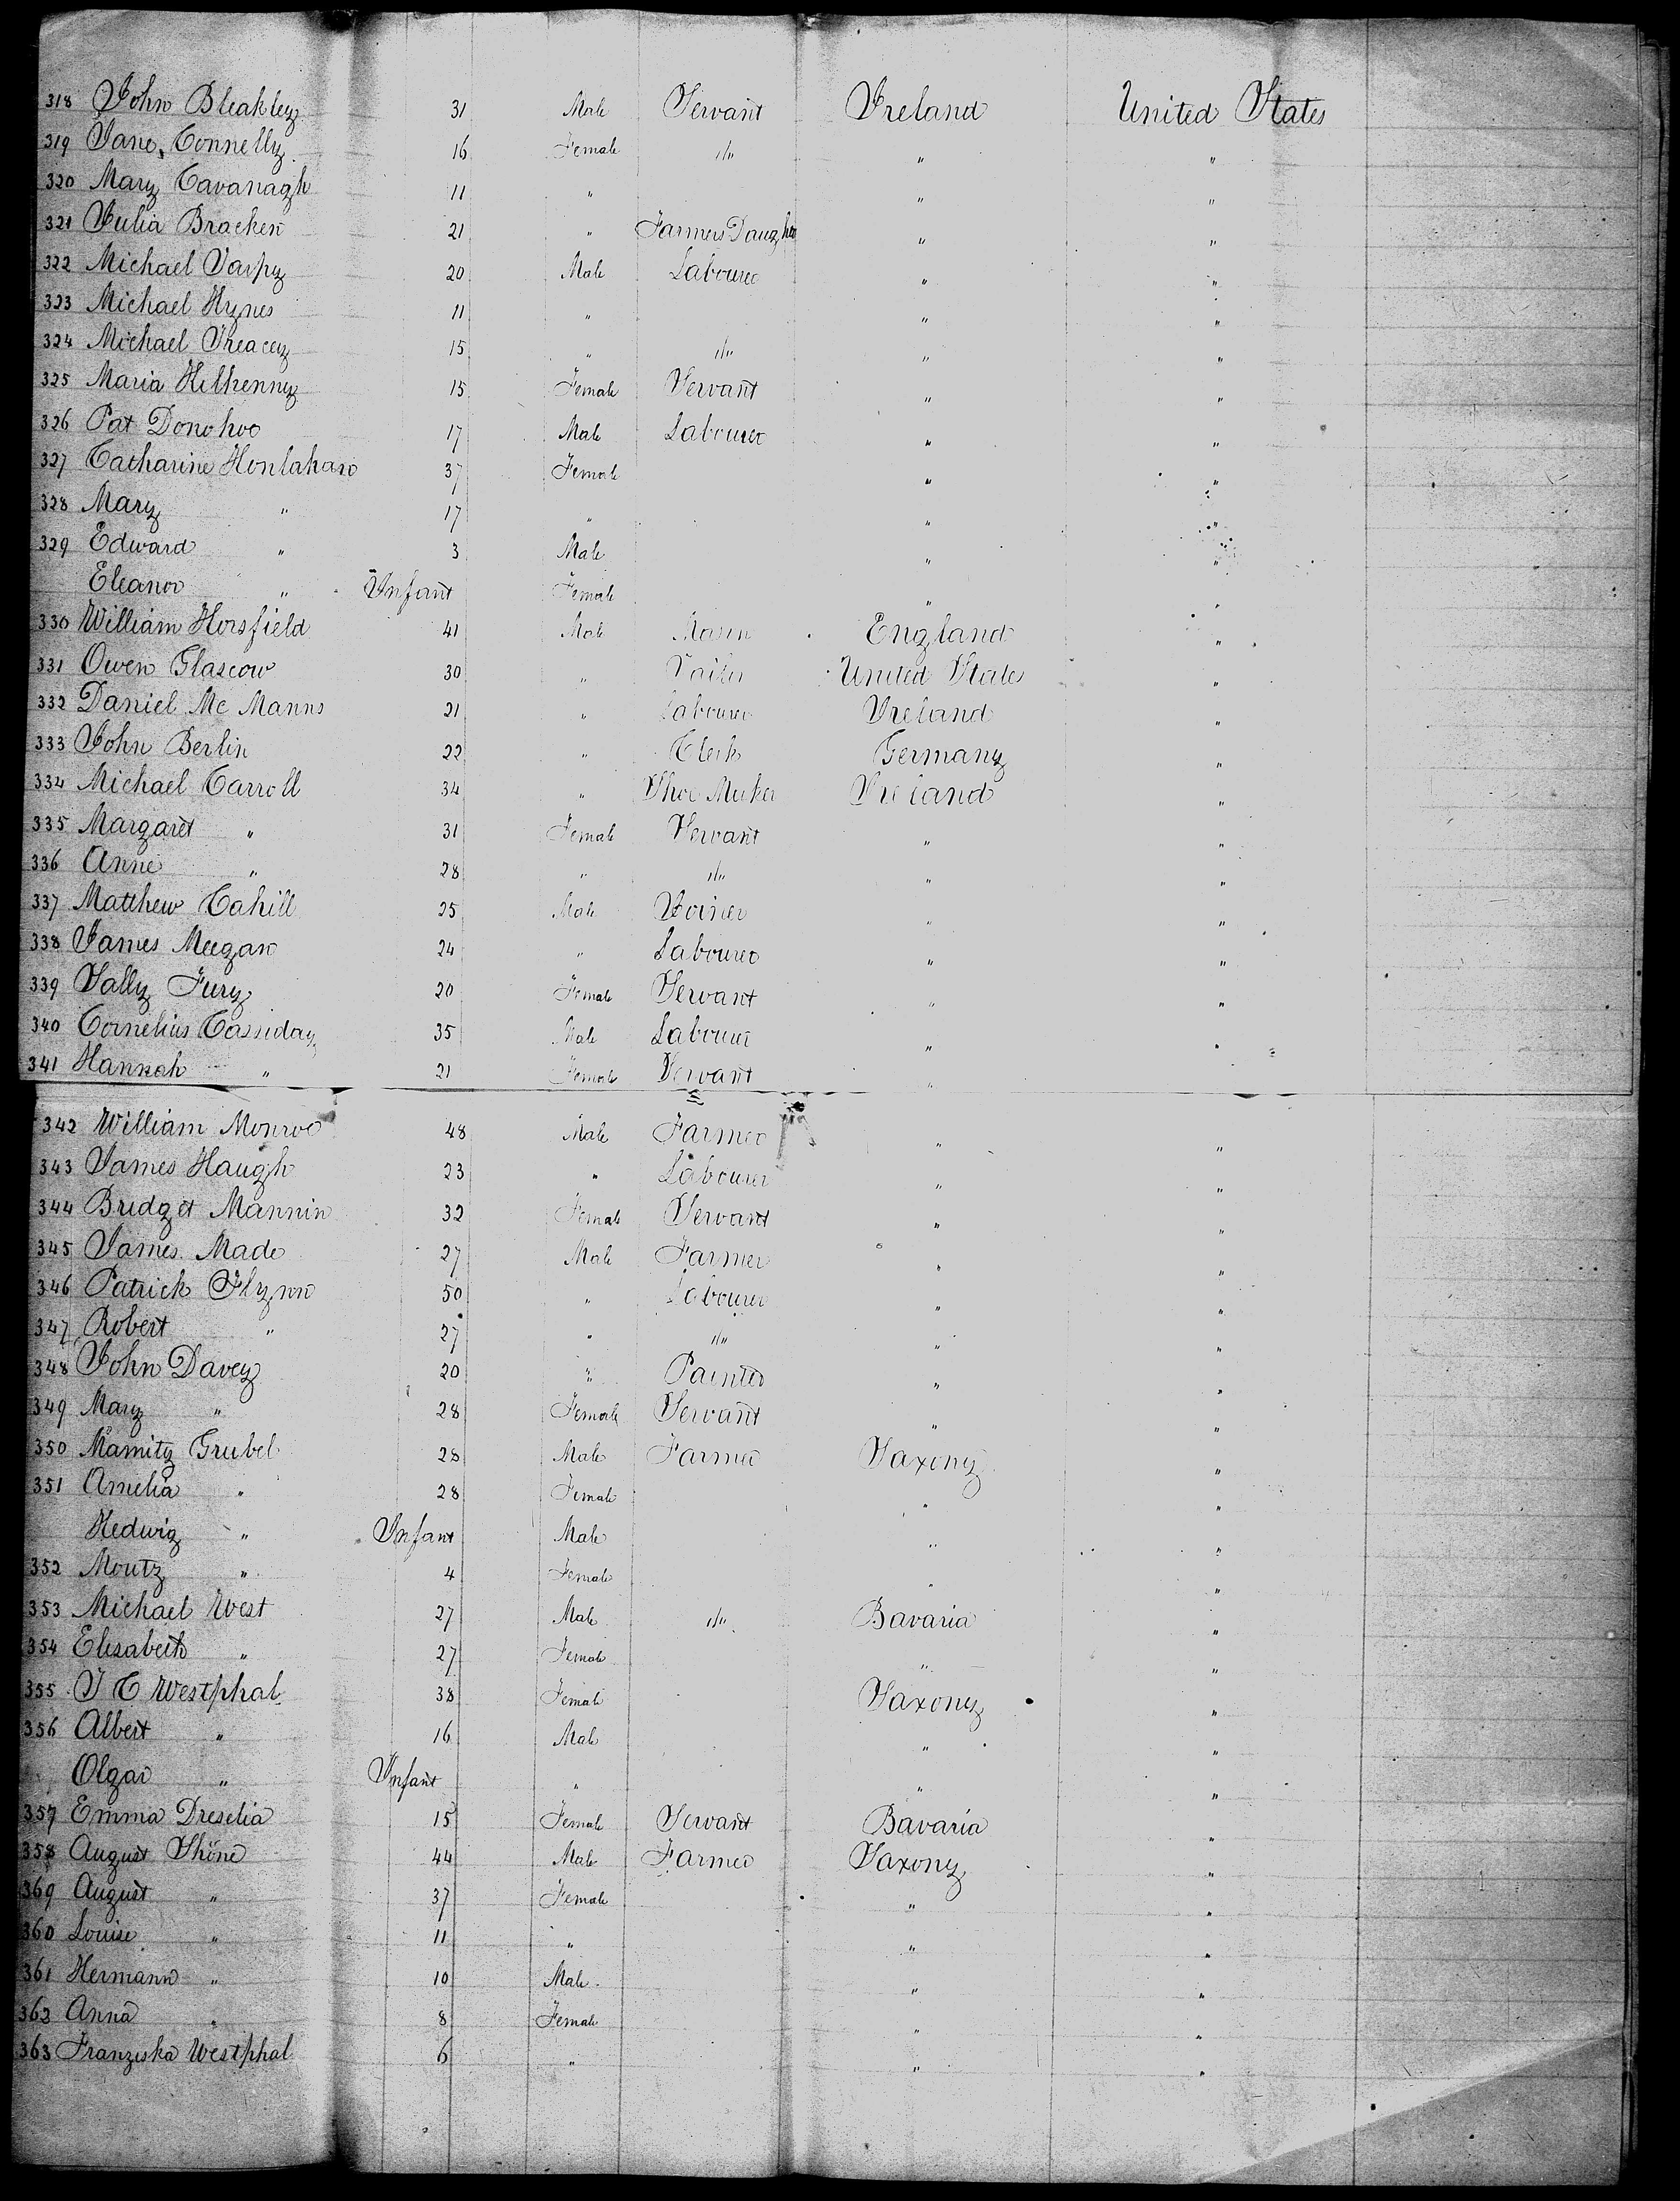 318 John Bleakley 31 Male Servant Ireland United States
319 Jane Connelly 16 Female " " "
320 Mary Cavanagh 11 " " "
321 Julia Bracken 21 " Farmers Daughter " "
322 Michael Tarpy 20 Male Labourer " "
323 Michael Hynes 11 " " "
324 Michael Treacey 15 " " " "
325 Maria Kilkenny 15 Female Servant " "
326 Pat Donohoe 17 Male Labourer " "
327 Catharine Honlahan 37 Female " "
328 Mary " 17 " " "
329 Edward " 3 Male " "
Eleanor " Infant Female " "
330 William Horsfield 41 Male Mason England "
331 Owen Glascow 30 " Tailor United States "
332 Daniel Mc Manns 21 " Labourer Ireland "
333 John Berlin 22 " Clerk Germany "
334 Michael Carroll 34 " Shoe Maker Ireland "
335 Margaret " 31 Female Servant " "
336 Anne " 28 " " " "
337 Matthew Cahill 25 Male Joiner " "
338 James Meegan 24 " Labourer " "
339 Sally Fury 20 Female Servant " "
340 Cornelius Cassiday 35 Male Labourer " "
341 Hannah " 21 Female Servant "
342 William Monroe 48 Male Farmer " "
343 James Haugh 23 " Labourer " "
344 Bridget Mannin 32 Female Servant " "
345 James Made 27 Male Farmer " "
346 Patrick Flynn 50 " Labourer " "
347 Robert " 27 " " " "
348 John Davey 20 " Painter " "
349 Mary " 28 Female Servant " "
350 Mamitz Grubel 28 Male Farmer Saxony "
351 Amelia " 28 Female " "
Hedwig " Infant Male " "
352 Moutz " 4 Female " "
353 Michael West 27 Male " Bavaria "
354 Elisabeth " 27 Female " "
355 J C Westphal 38 Female Saxony "
356 Albert " 16 Male " "
Olgar " Infant " " "
357 Emma Dreselia 15 Female Servant Bavaria "
358 August Thöne 44 Male Farmer Saxony "
369 August " 37 Female " "
360 Louise " 11 " " "
361 Hermann " 10 Male " "
362 Anna " 8 Female " "
363 Franziska Westphal 6 " " "